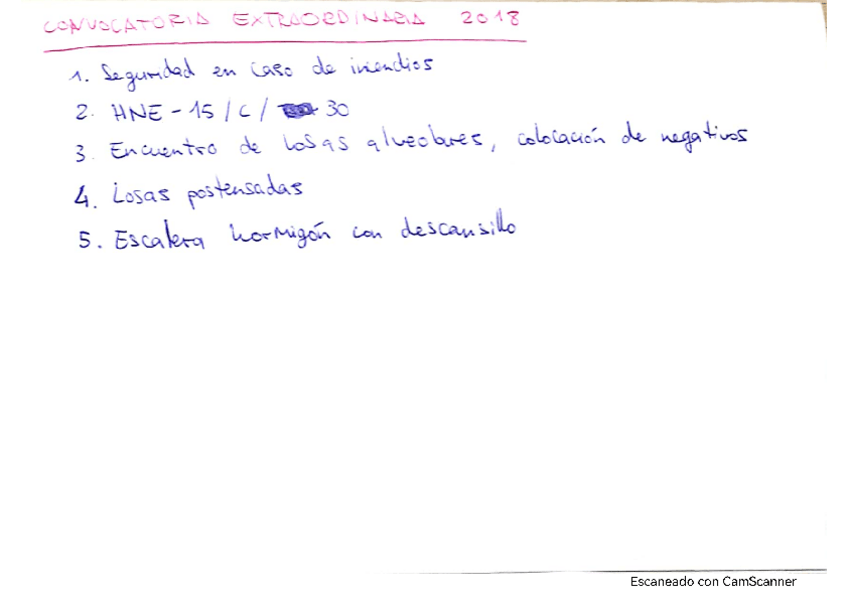 CONVOCATORIA EXTRAORDINARIA 2018
1. Seguridad en caso de incendios
2. HNE - 15 / C / 30
3. Encuentro de losas alveolares, colocación de negativos
4. Losas postensadas
5. Escalera hormigón con descansillo
Escaneado con CamScanner